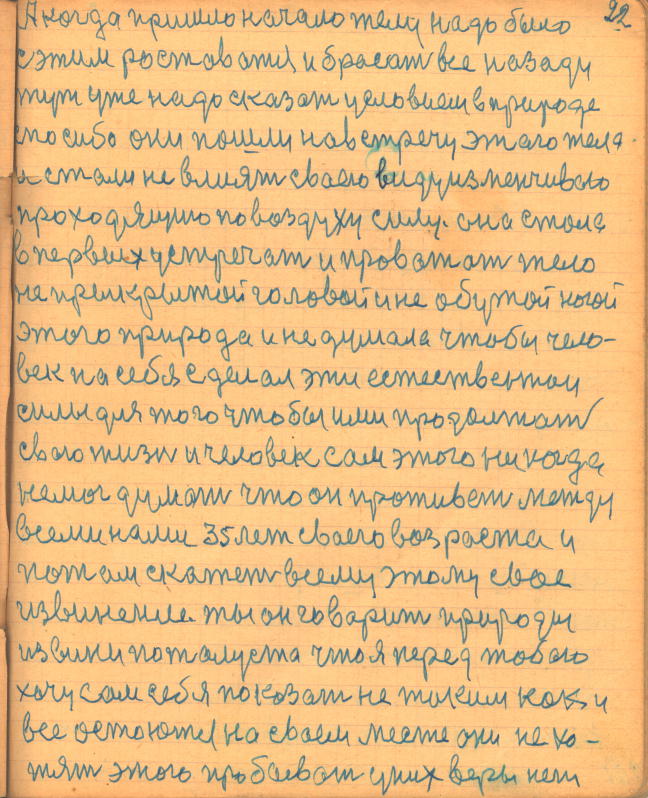 22
А когда пришло начало телу надо было
с этим роставатся и бросат все назаду
тут уже надо сказат условием в природе
спосибо они пошли навстречу этаго тела
и стали не влият сваего виду изменчиваю
проходящию по воздуху силу. она стала
в первых устречат и проватат тело
не прикрытой головой и не обутой ногой
этого природа и не думала чтобы чело-
век на себя сделал эти естественои
силы для того чтобы ими продолжат
сваю жизн и человек сам этого никогда
немог думат что он проживет между
всеми нами 35 лет сваего возраста и
потам скажет всему этому свое
извинение. ты он говарит природы
извини пожалуста что я перед тобаю
хочу сам себя показат не таким как и
все остоются на сваем месте они не хо-
тят этого пробоват у них веры нет